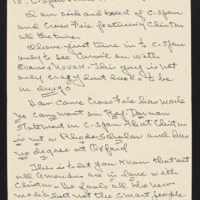 To: C-Span
I am sick and tired of C-Span
and Cross Fire featuring Clinton
all the time.
I have just tuned in to C-Span
only to see
Evans work. This guy is not
only crazy but to be
in drugs
How come Cross Fire has made
no comment on Bob Dornan
statement on C-Span that Clinton
is not a Rhodes Scholar and has
no degree at Oxford
This is to let you know that not
all Americans are in love with
Clinton. He fools all the news
media but not the smart people